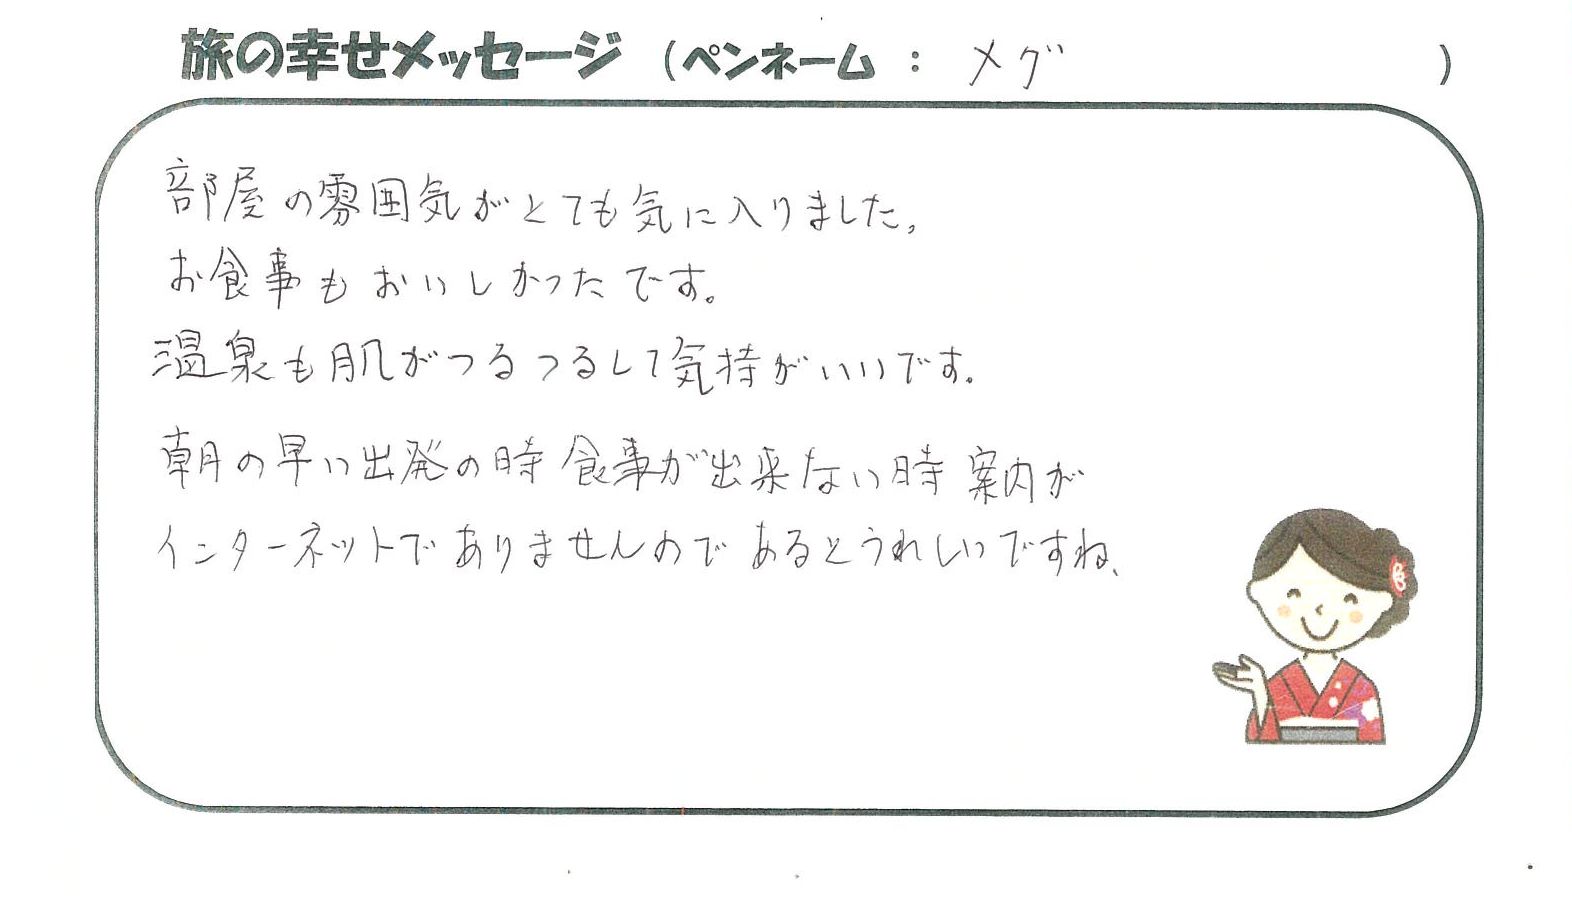 旅の幸せメッセージ (ペンネーム : メグ )
部屋の雰囲気がとても気に入りました。
お食事もおいしかったです。
温泉も肌がつるつるして気持がいいです。
朝の早い出発の時食事が出来ない時案内が
インターネットでありませんのであるとうれしいですね、